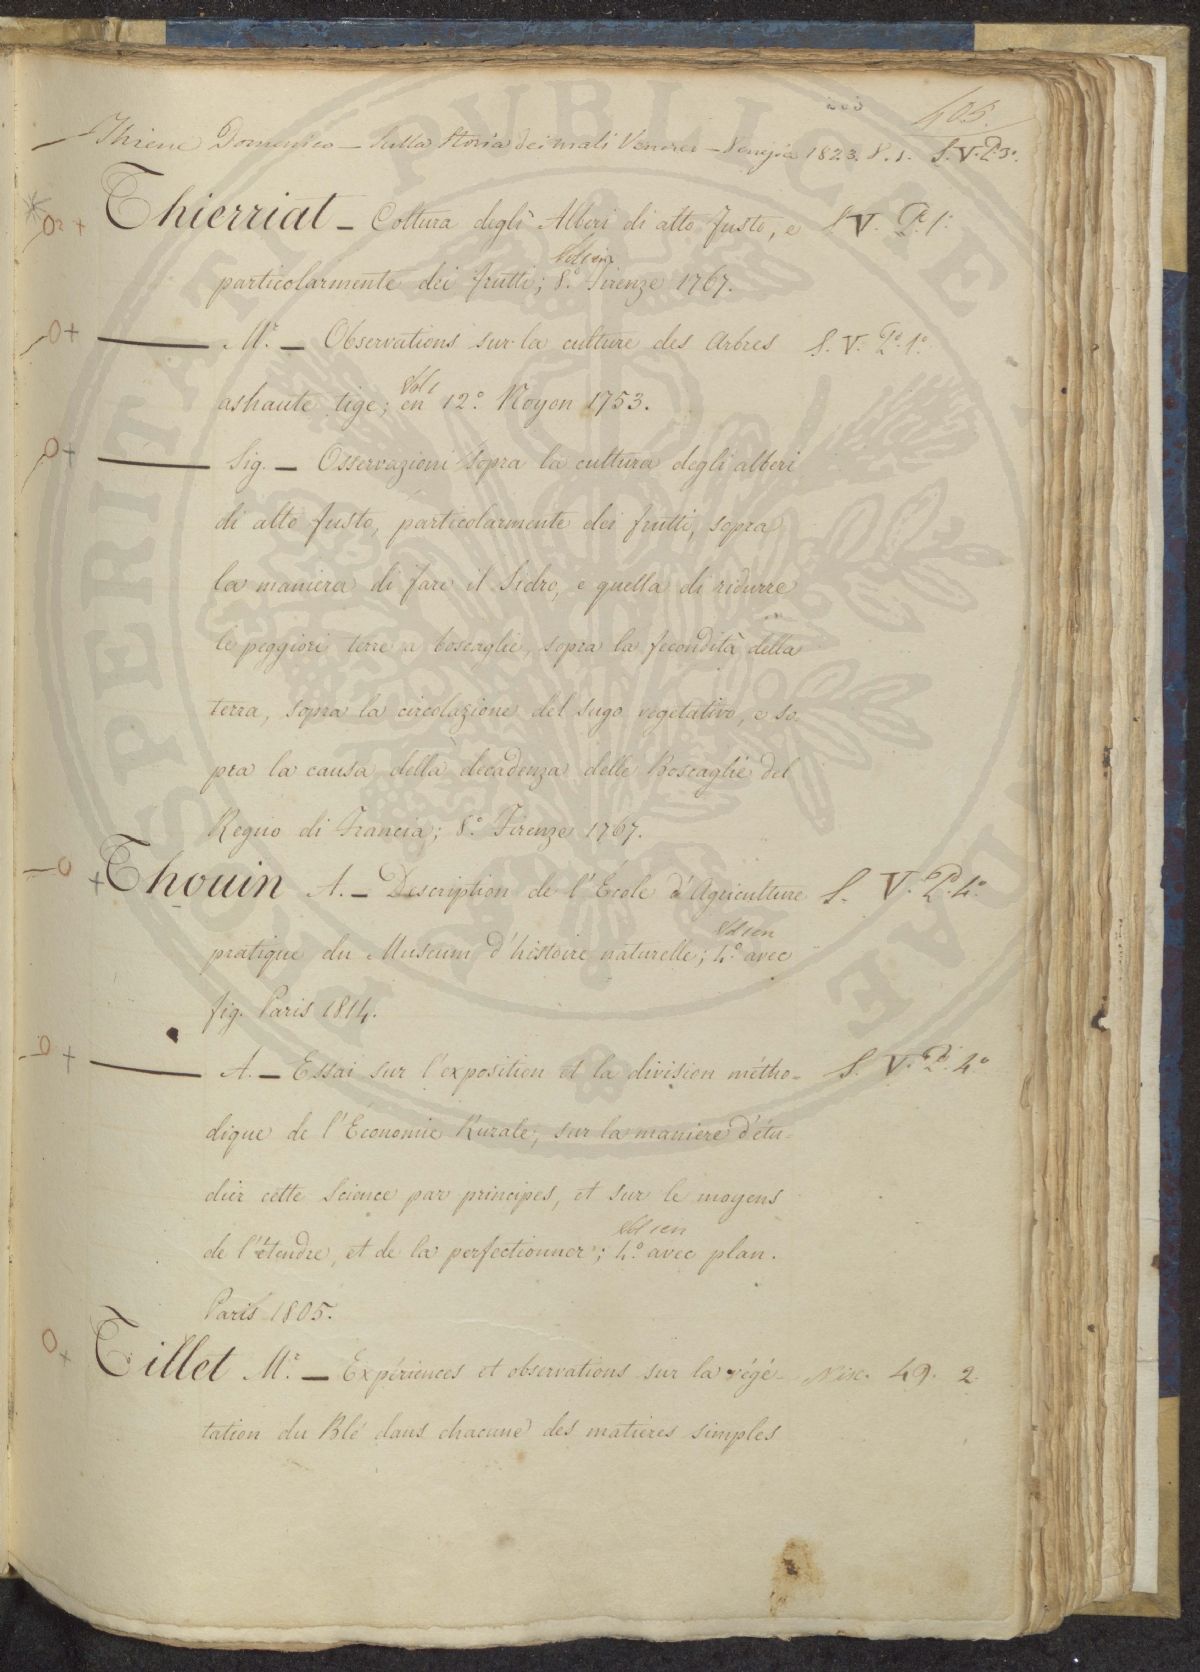 405.
Thiene Domenico – Sulla Storia dei mali Venerei – Venezia 1823. 8. 1. S. V. P. 3°.
Thierriat – Coltura degli Alberi di alto fusto, e S. V. P. 1°.
particolarmente dei frutti; Vol. 1 in 8.° Firenze 1767.
M.r – Observations sur la culture des Arbres S. V. P. 1°.
ashaute tige; Vol 1 en 12.° Noyon 1753.
Sig. – Osservazioni sopra la cultura degli alberi
di alto fusto, particolarmente dei frutti, sopra
la maniera di fare il Sidro, e quella di ridurre
le peggiori terre a boscaglie, sopra la fecondità della
terra, sopra la circolazione del sugo vegetativo, e so
pra la causa della decadenza delle Boscaglie del
Regno di Francia; 8.° Firenze 1767.
Thouin A. – Description de l'École d'Agriculture S. V. P. 4°.
pratique du Museum d'histoire naturelle; Vol 1 en 4.° avec
fig. Paris 1814.
A. – Essai sur l'exposition et la division métho- S. V. P. 4°
dique de l'Économie Rurale, sur la maniere d'étu-
dier cette Science par principes, et sur le moyens
de l'étendre, et de la perfectionner; Vol 1 en 4.° avec plan.
Paris 1805.
Tillet M.r – Expériences et observations sur la végé- Misc. 49. 2.
tation du Blé dans chacune des matieres simples
PUBLICAE
PROSPERITATI